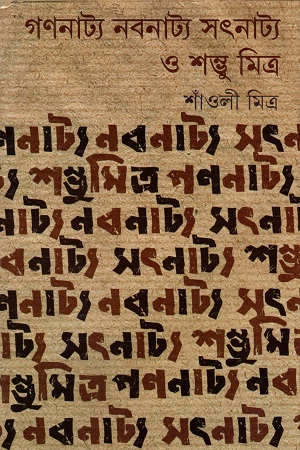 গণনাট্য নবনাট্য সৎনাট্য
ও শম্ভু মিত্র
শাঁওলী মিত্র
গণনাট্য নবনাট্য সৎনা
ট্য শম্ভুমিত্র গণনাট্য
নাট্য নবনাট্য সৎনা
নবনাট্য সৎনাট্য শম্ভু
গণনাট্য নবনাট্য সৎ
নাট্য সৎনাট্য শম্ভুমি
শম্ভুমিত্র গণনাট্য নব
নবনাট্য সৎনাট্য